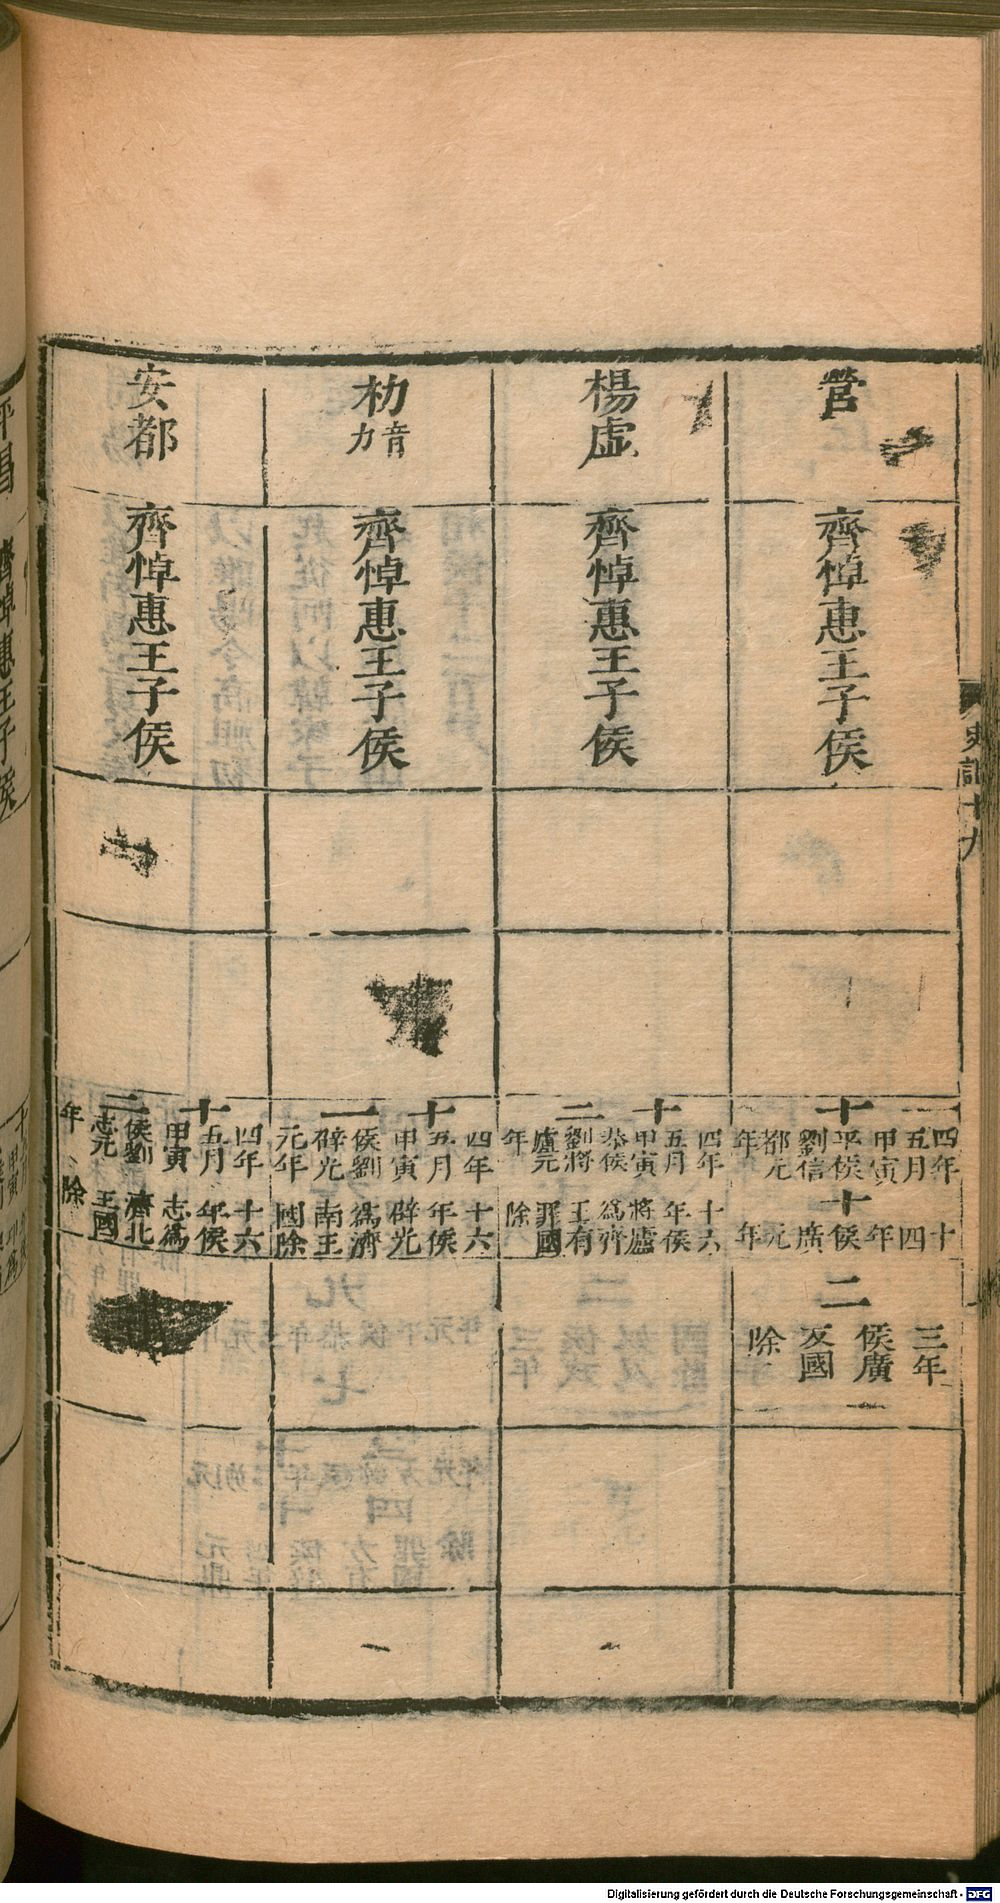 史記十九
營
齊悼惠王子侯
十
四年
五月
甲寅
平侯
劉信
都元
年
十
十四年侯廣元年
二
三年
侯廣
反國
除
楊虛
齊悼惠王子侯
十二
四年
五月
甲寅
恭侯
劉將
廬元
年
十六
年侯
將廬
爲齊
王有
罪國
除
朸
音力
齊悼惠王子侯
十一
四年
五月
甲寅
侯劉
辟光
元年
十六
年侯
辟光
爲濟
南王
國除
安都
齊悼惠王子侯
十二
四年
五月
甲寅
侯劉
志元
年
十六
年侯
志爲
濟北
王國
除
平昌
齊悼惠王子侯
Digitalisierung gefördert durch die Deutsche Forschungsgemeinschaft - DFG